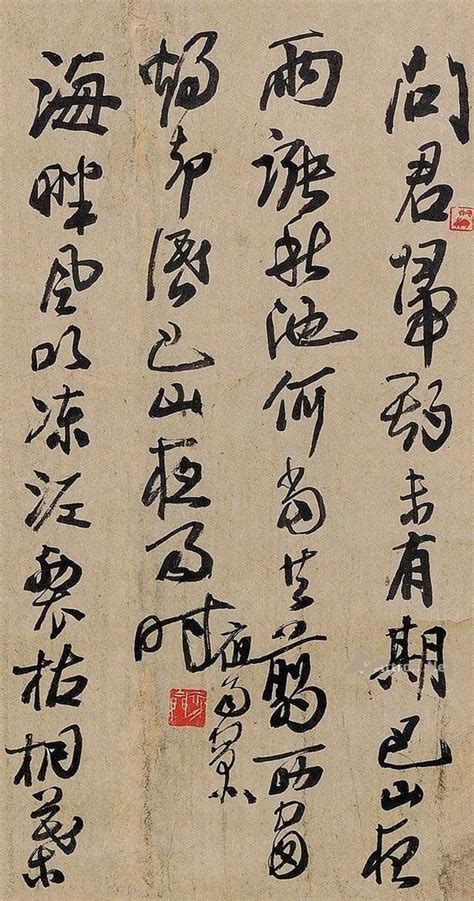 問君歸期未有期巴山夜
雨漲秋池何當共剪西窗
燭却話巴山夜雨時
夜雨
海畔風吹凍泥裂枯桐葉